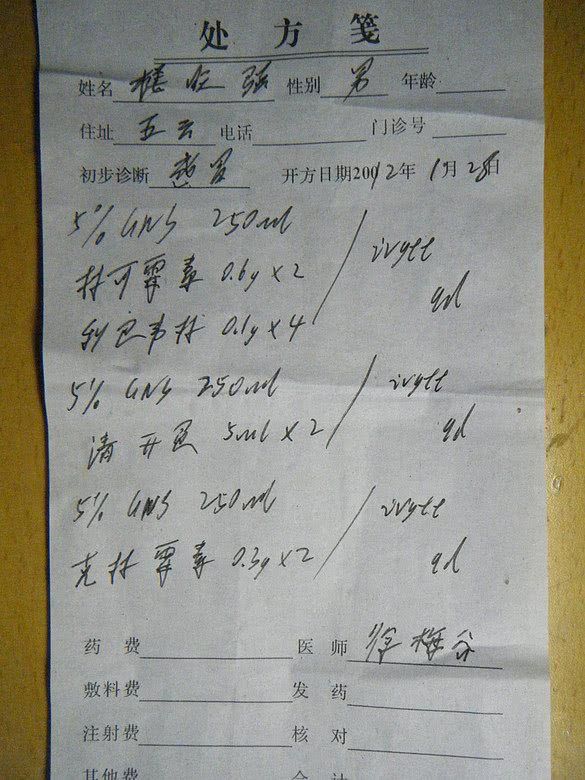 处方笺
姓名 性别 男 年龄
住址 五云 电话 门诊号
初步诊断 感冒 开方日期2002年1月28日
5% GNS 250ml
林可霉素 0.6g×2 ivgtt
利巴韦林 0.1g×4 qd
5% GNS 250ml ivgtt
清开灵 5ml×2 qd
5% GNS 250ml ivgtt
克林霉素 0.3g×2 qd
药费 医师 徐梅
敷料费 发药
注射费 核对
其他费 合计